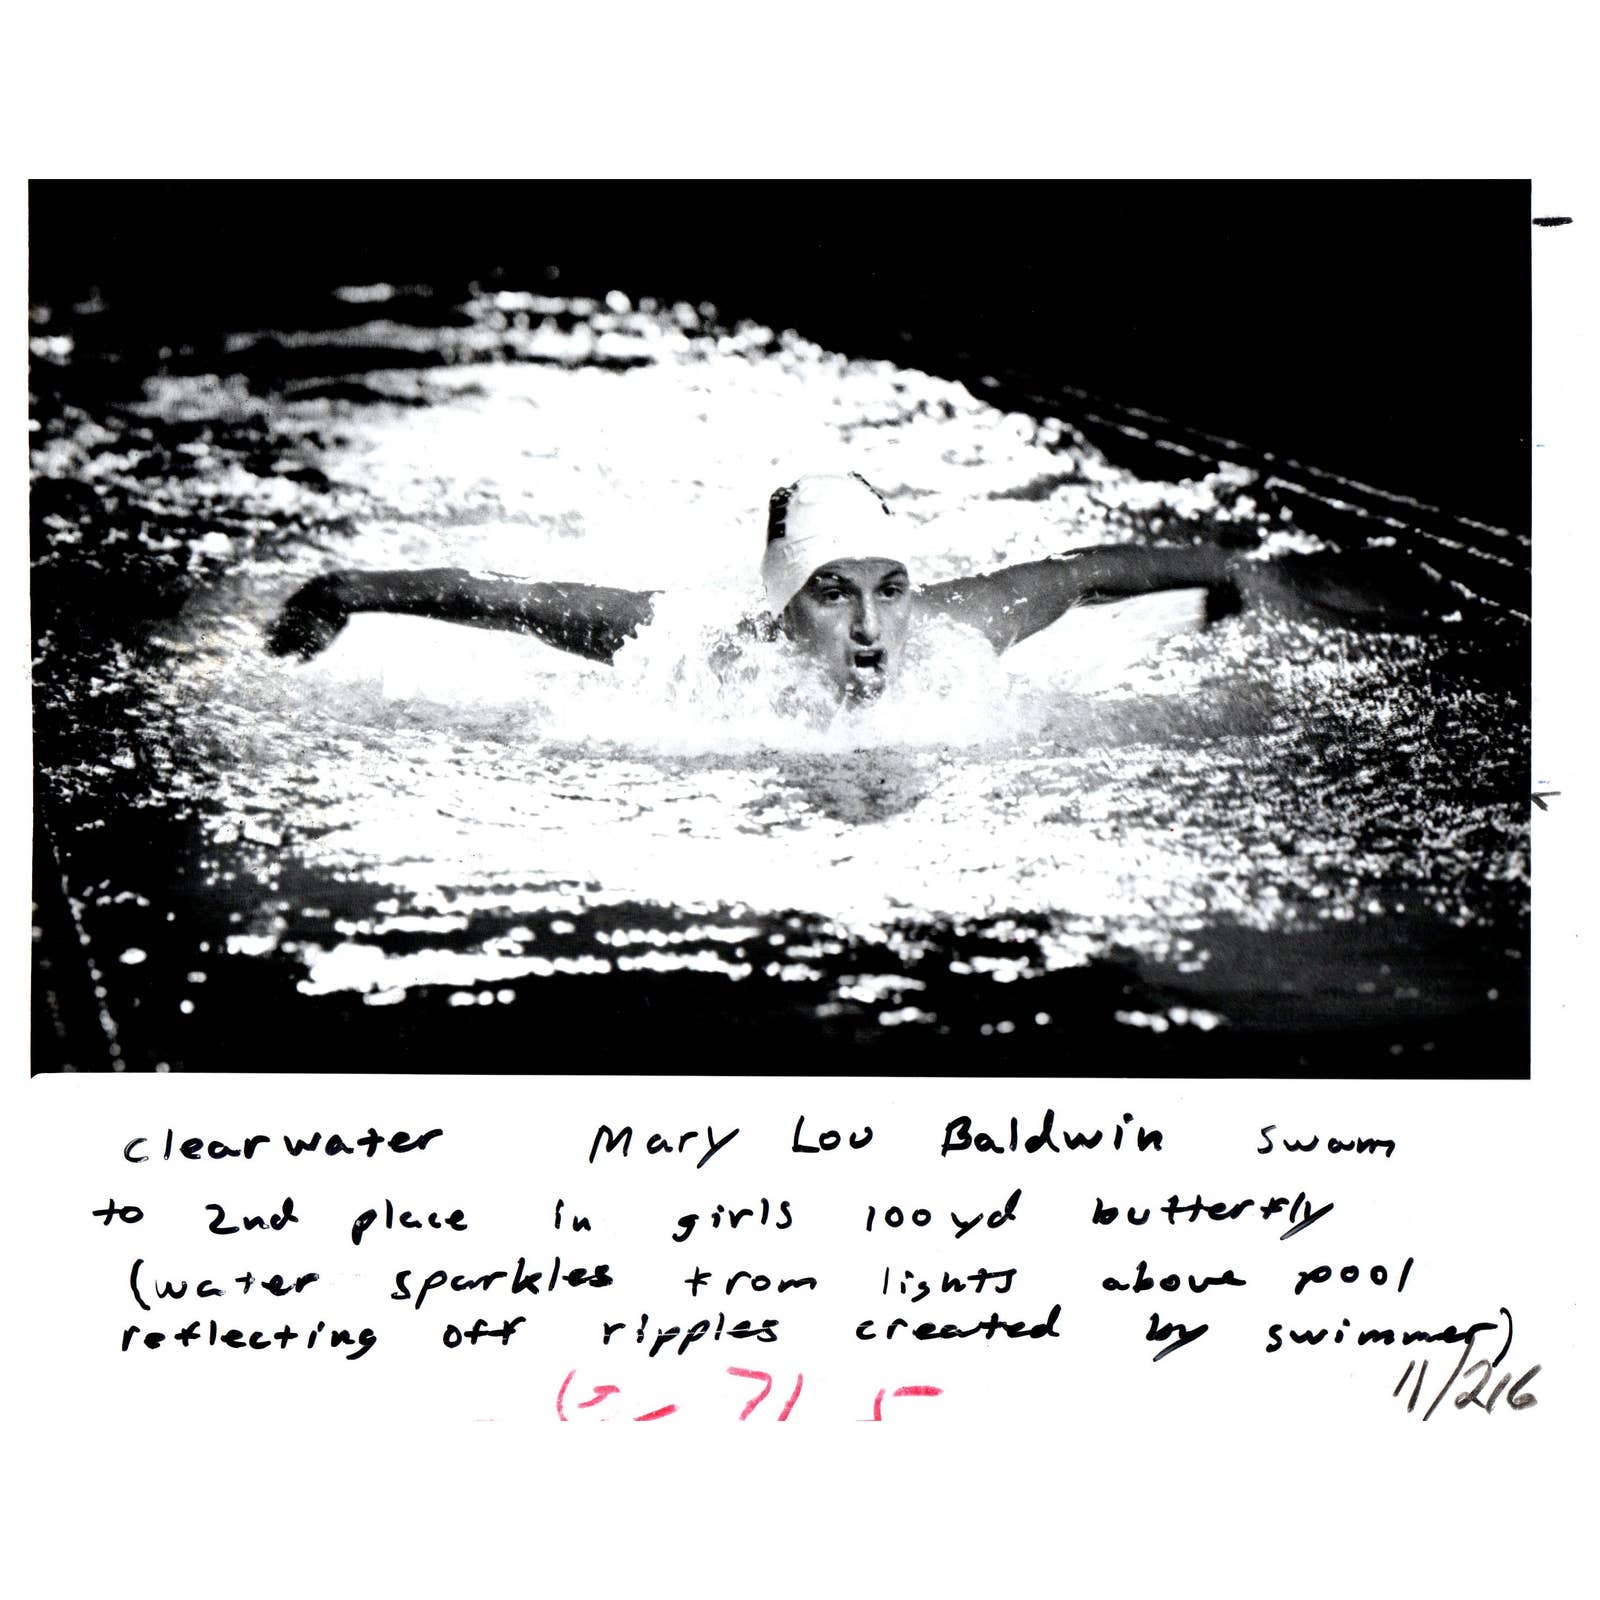 clearwater Mary Lou Baldwin swam
to 2nd place in girls 100 yd butterfly
(water sparkles from lights above pool
reflecting off ripples created by swimmer)
11/216